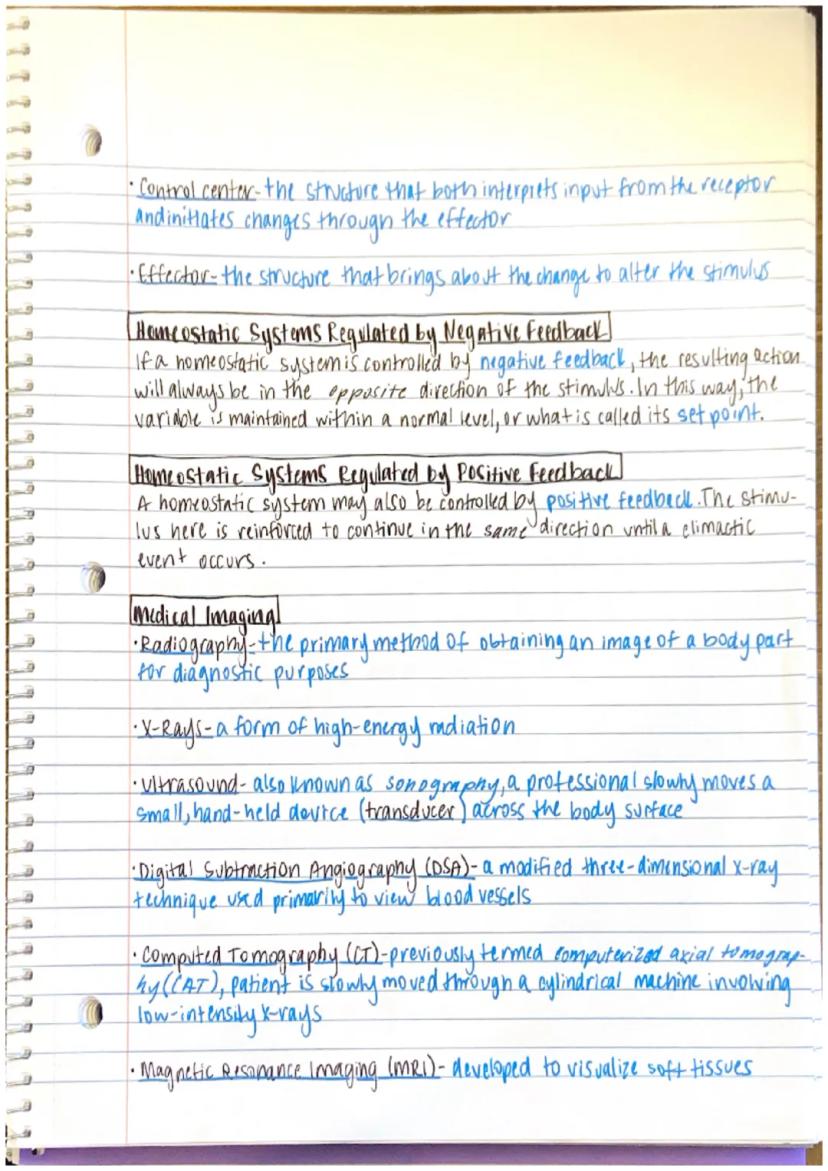 · Control center - the structure that both interprets input from the receptor
and initiates changes through the effector
· Effector - the structure that brings about the change to alter the stimulus
Homeostatic Systems Regulated by Negative Feedback
If a homeostatic system is controlled by negative feedback, the resulting action
will always be in the opposite direction of the stimulus. In this way, the
variable is maintained within a normal level, or what is called its set point.
Homeostatic Systems Regulated by Positive Feedback
A homeostatic system may also be controlled by positive feedback. The stimu-
lus here is reinforced to continue in the same direction until a climactic
event occurs.
Medical Imaging
· Radiography - the primary method of obtaining an image of a body part
for diagnostic purposes
· X-Rays - a form of high-energy radiation
· Ultrasound - also known as sonography, a professional slowly moves a
small, hand-held device (transducer) across the body surface
· Digital Subtraction Angiography (DSA) - a modified three-dimensional x-ray
technique used primarily to view blood vessels
· Computed Tomography (CT) - previously termed computerized axial tomograp-
hy (CAT), patient is slowly moved through a cylindrical machine involving
low-intensity x-rays
· Magnetic Resonance Imaging (MRI) - developed to visualize soft tissues